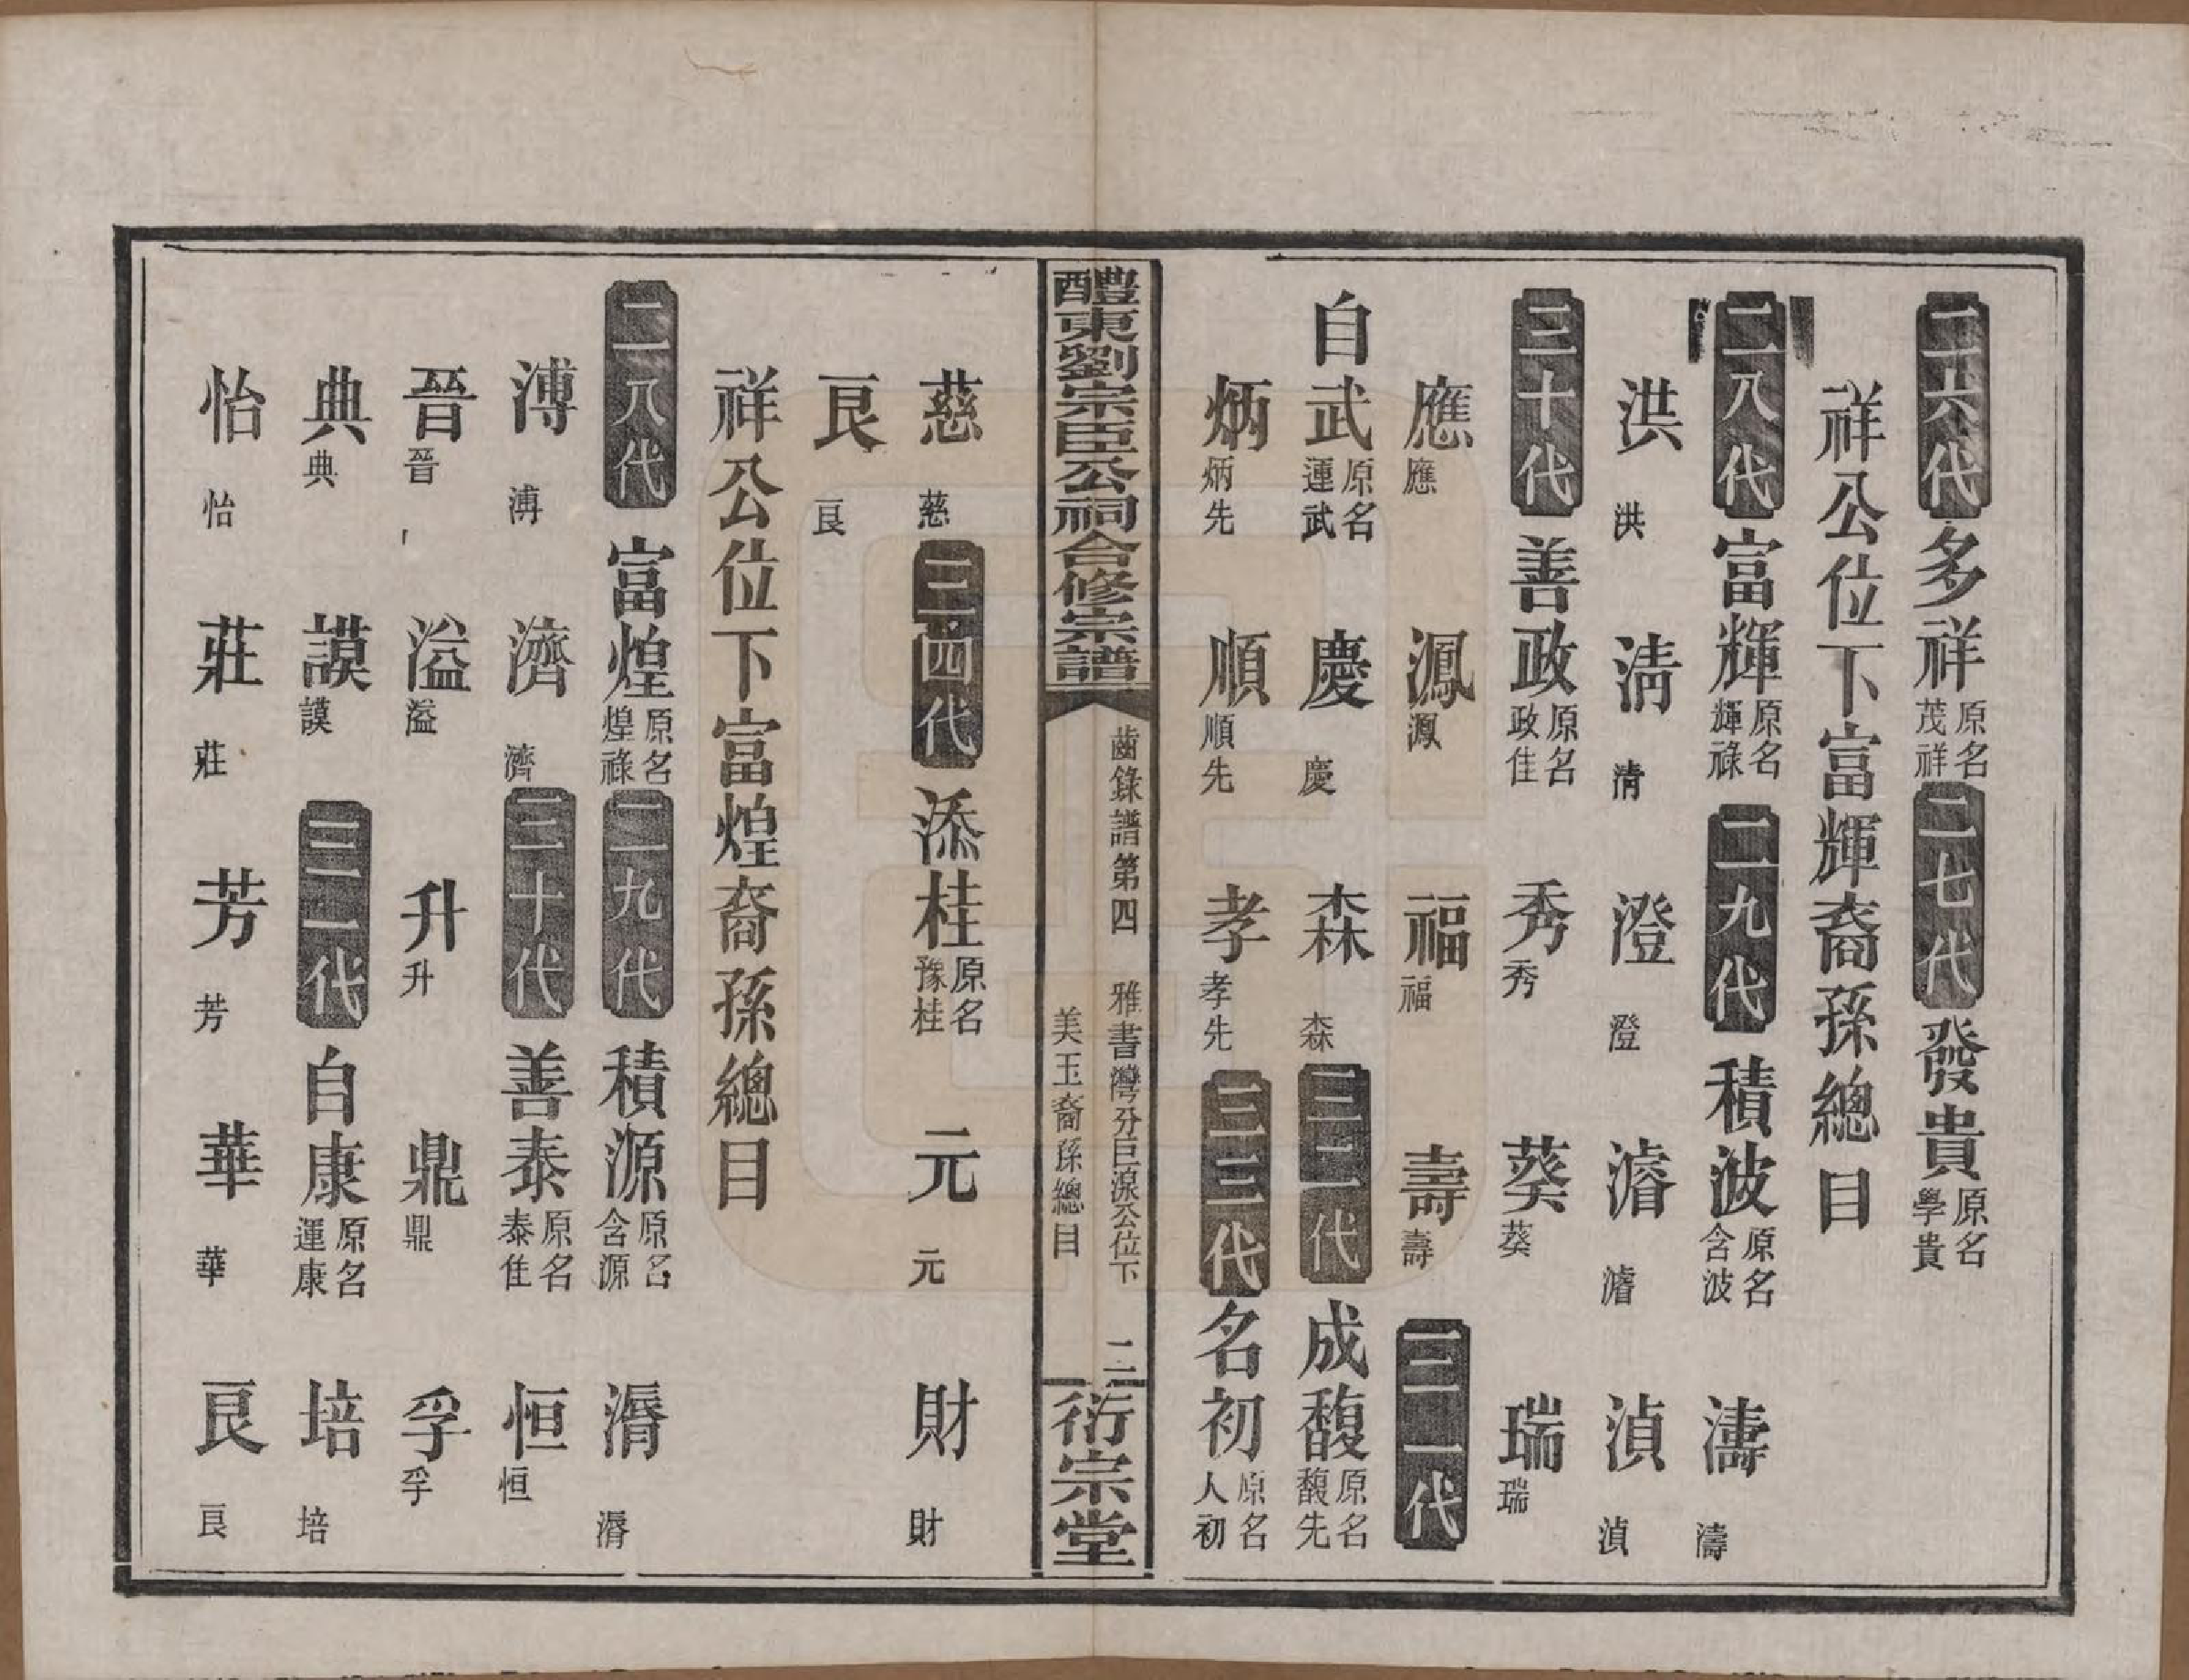 二六代多祥原名茂祥二七代發貴原名學貴
祥公位下富輝裔孫總目
二八代富輝原名輝祿二九代積波原名含波濤濤
洪洪清清澄澄濬濬湞湞
三十代善政原名政佳秀秀葵葵瑞瑞
應應鳳鳳福福壽壽三一代
自武原名運武慶慶森森三二代成馥原名馥先
炳炳先順順先孝孝先三三代名初原名人初
醴東劉宗臣公祠合修宗譜
齒錄譜第四
雅書灣分巨源公位下
美玉裔孫總目
二
衍宗堂
慈慈三四代添桂原名豫桂元元財財
良良
祥公位下富煌裔孫總目
二八代富煌原名煌祿二九代積源原名含源潛潛
溥溥濟濟三十代善泰原名泰佳恒恒
晉晉溢溢升升鼎鼎孚孚
典典謨謨三一代自康原名運康培培
怡怡莊莊芳芳華華良良